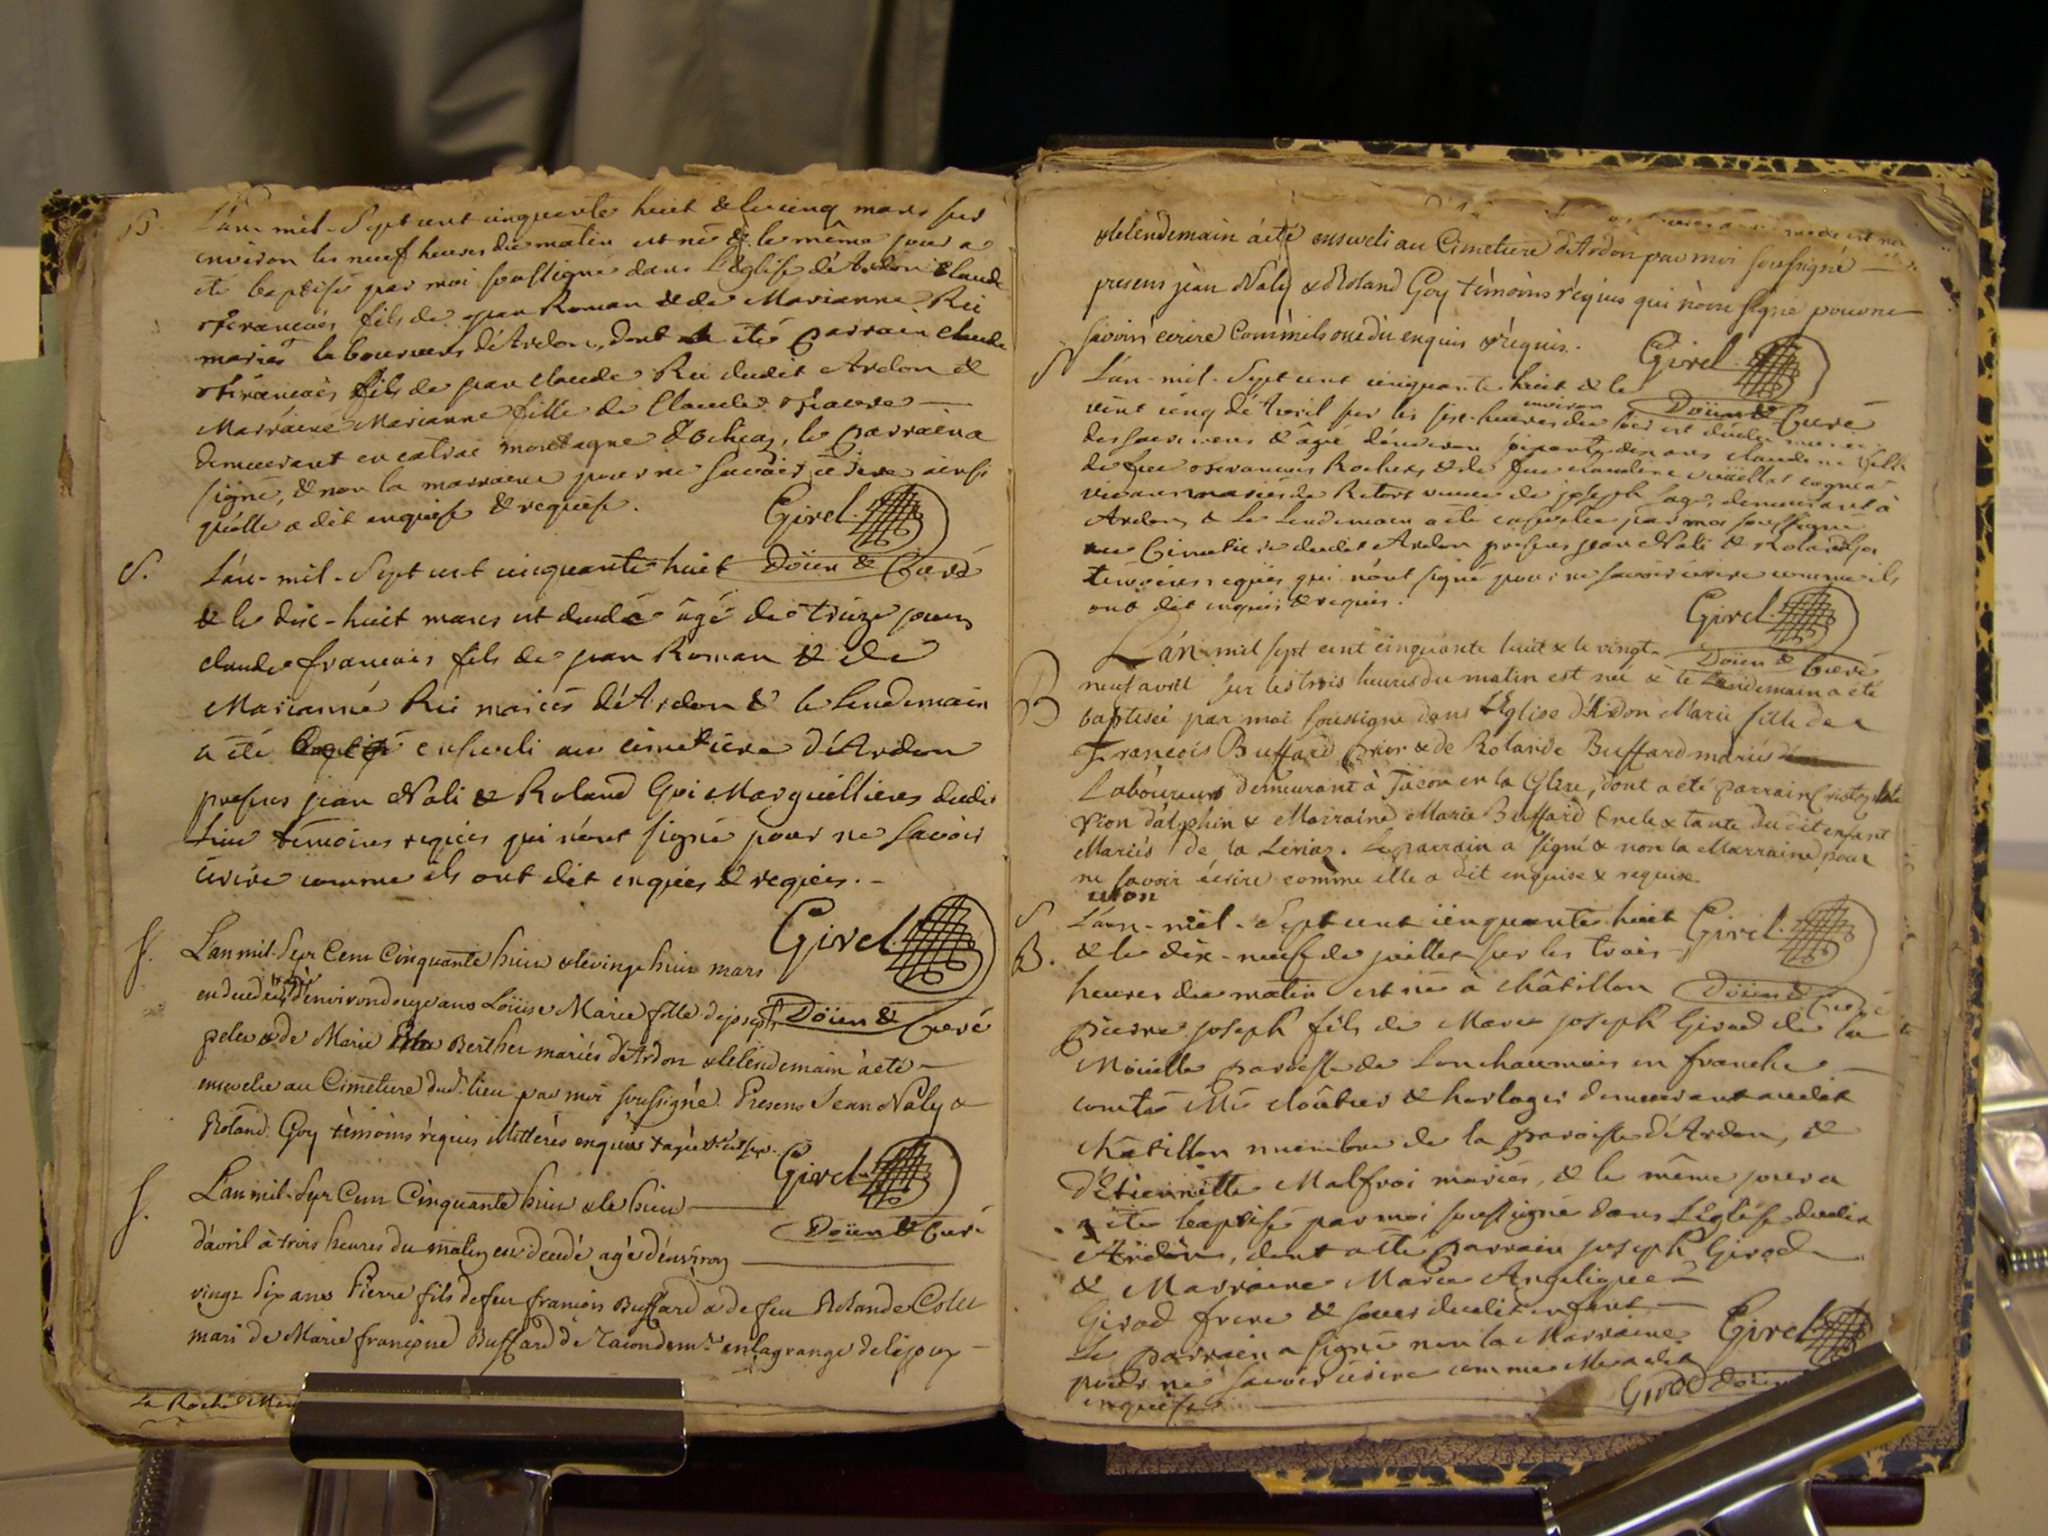 B. L'an-mil-Sept cent cinquante huit & le cinq mars sur
environ les neuf heures du matin est né & le même jour a
été baptisé par moi soussigné dans L'église d'Ardon Claude
françois fils de jean Roman & de Marianne Rei
mariés laboureurs d'Ardon, dont a été parrain claude
françois fils de jean claude Rei dudit Ardon &
Marraine Marianne fille de Claude
demeurant en montagne d'Ochiaz, le parrain a
signé, & non la marraine pour ne savoir écrire ainsi
qu'elle a dit enquise & requise.
Girel
Doïen & Curé
S. L'an-mil-Sept cent cinquante huit
& le dix-huit mars est decedé âgé de treize jours
claude françois fils de jean Roman & de
Marianne Rei mariés d'Ardon & le lendemain
a été enseveli au cimetiere d'Ardon
presens jean Nali & Roland Goi Marguilliers dudit
Lieu témoins requis qui n'ont signé pour ne savoir
écrire comme ils ont dit enquis & requis.-
Girel
Doïen & Curé
S. L'an mil-Sept Cent Cinquante huit & le vingt huit mars
est decedée d'environ ans Loüise Marie fille de joseph
& de Marie Berthet mariés d'Ardon & le lendemain à été
ensevelie au Cimetiere dud. lieu par moi soussigné. Presens Jean Naly &
Roland Goy témoins requis Illitterés enquis
Girel
Doïen & Curé
S. L'an mil-Sept Cent Cinquante huit & le huit
d'avril à trois heures du matin est decedé agé d'environ
vingt six ans Pierre fils de feu françois Buffard & de feu Rolande
mari de Marie françoise Buffard de Tacon demt. en la grange de lejoux
La Roche
& le lendemain à été enseveli au Cimetiere d'Ardon par moi soussigné
presens jean Naly & Roland Goy témoins requis qui n'ont signé pour ne
savoir écrire comm'ils ont dit enquis & requis.
Girel
Doïen & Curé
S L'an-mil-Sept cent cinquante huit & le
vint cinq d'Avril sur les six-heures environ du soir est decedée munie
des sacremens & âgée d'environ soixante dix ans claudine fille
de feu françois Rochex & de feu claudine
vivans mariés de Retort veuve de joseph demeurant à
Ardon, & le lendemain a été ensevelie par moi soussigné
au Cimetiere dudit Ardon presens jean Nali & Roland Goi
témoins requis qui n'ont signé pour ne savoir écrire comme ils
ont dit enquis & requis.
Girel
Doïen & Curé
B L'an mil sept cent cinquante huit & le vingt-
neuf avril sur les trois heures du matin est née & le Lendemain a été
baptisée par moi soussigné dans L'Eglise d'Ardon Marie fille de
François Buffard & de Rolande Buffard mariés
Laboureurs demeurant à Tacon en la Cluse, dont a été parrain
Vion dalphin & Marraine Marie Buffard oncle & tante du dit enfant
Mariés de la Serraz. Le parrain a signé & non la Marraine pour
ne savoir écrire comme elle a dit enquise & requise
Girel
Doïen & Curé
B. L'an-mil-Sept cent cinquante huit
& le dix-neuf de juillet sur les trois
heures du matin est né à châtillon
pierre joseph fils de Marc joseph Girod de la
Mouille paroisse de Lonchaumois en franche
comté Me cloûtier & horloger demeurant audit
châtillon membre de la paroisse d'Ardon, &
d'Etiennette Malfroi mariés, & le même jour a
été baptisé par moi soussigné dans L'église dudit
Ardon, dont a été parrain joseph Girod
& Marraine Marie Angelique
Girod frere & soeur dudit enfant
Le parrain a signé non la Marraine
pour ne savoir écrire comme elle a dit
enquise
Girel
Girod doïen